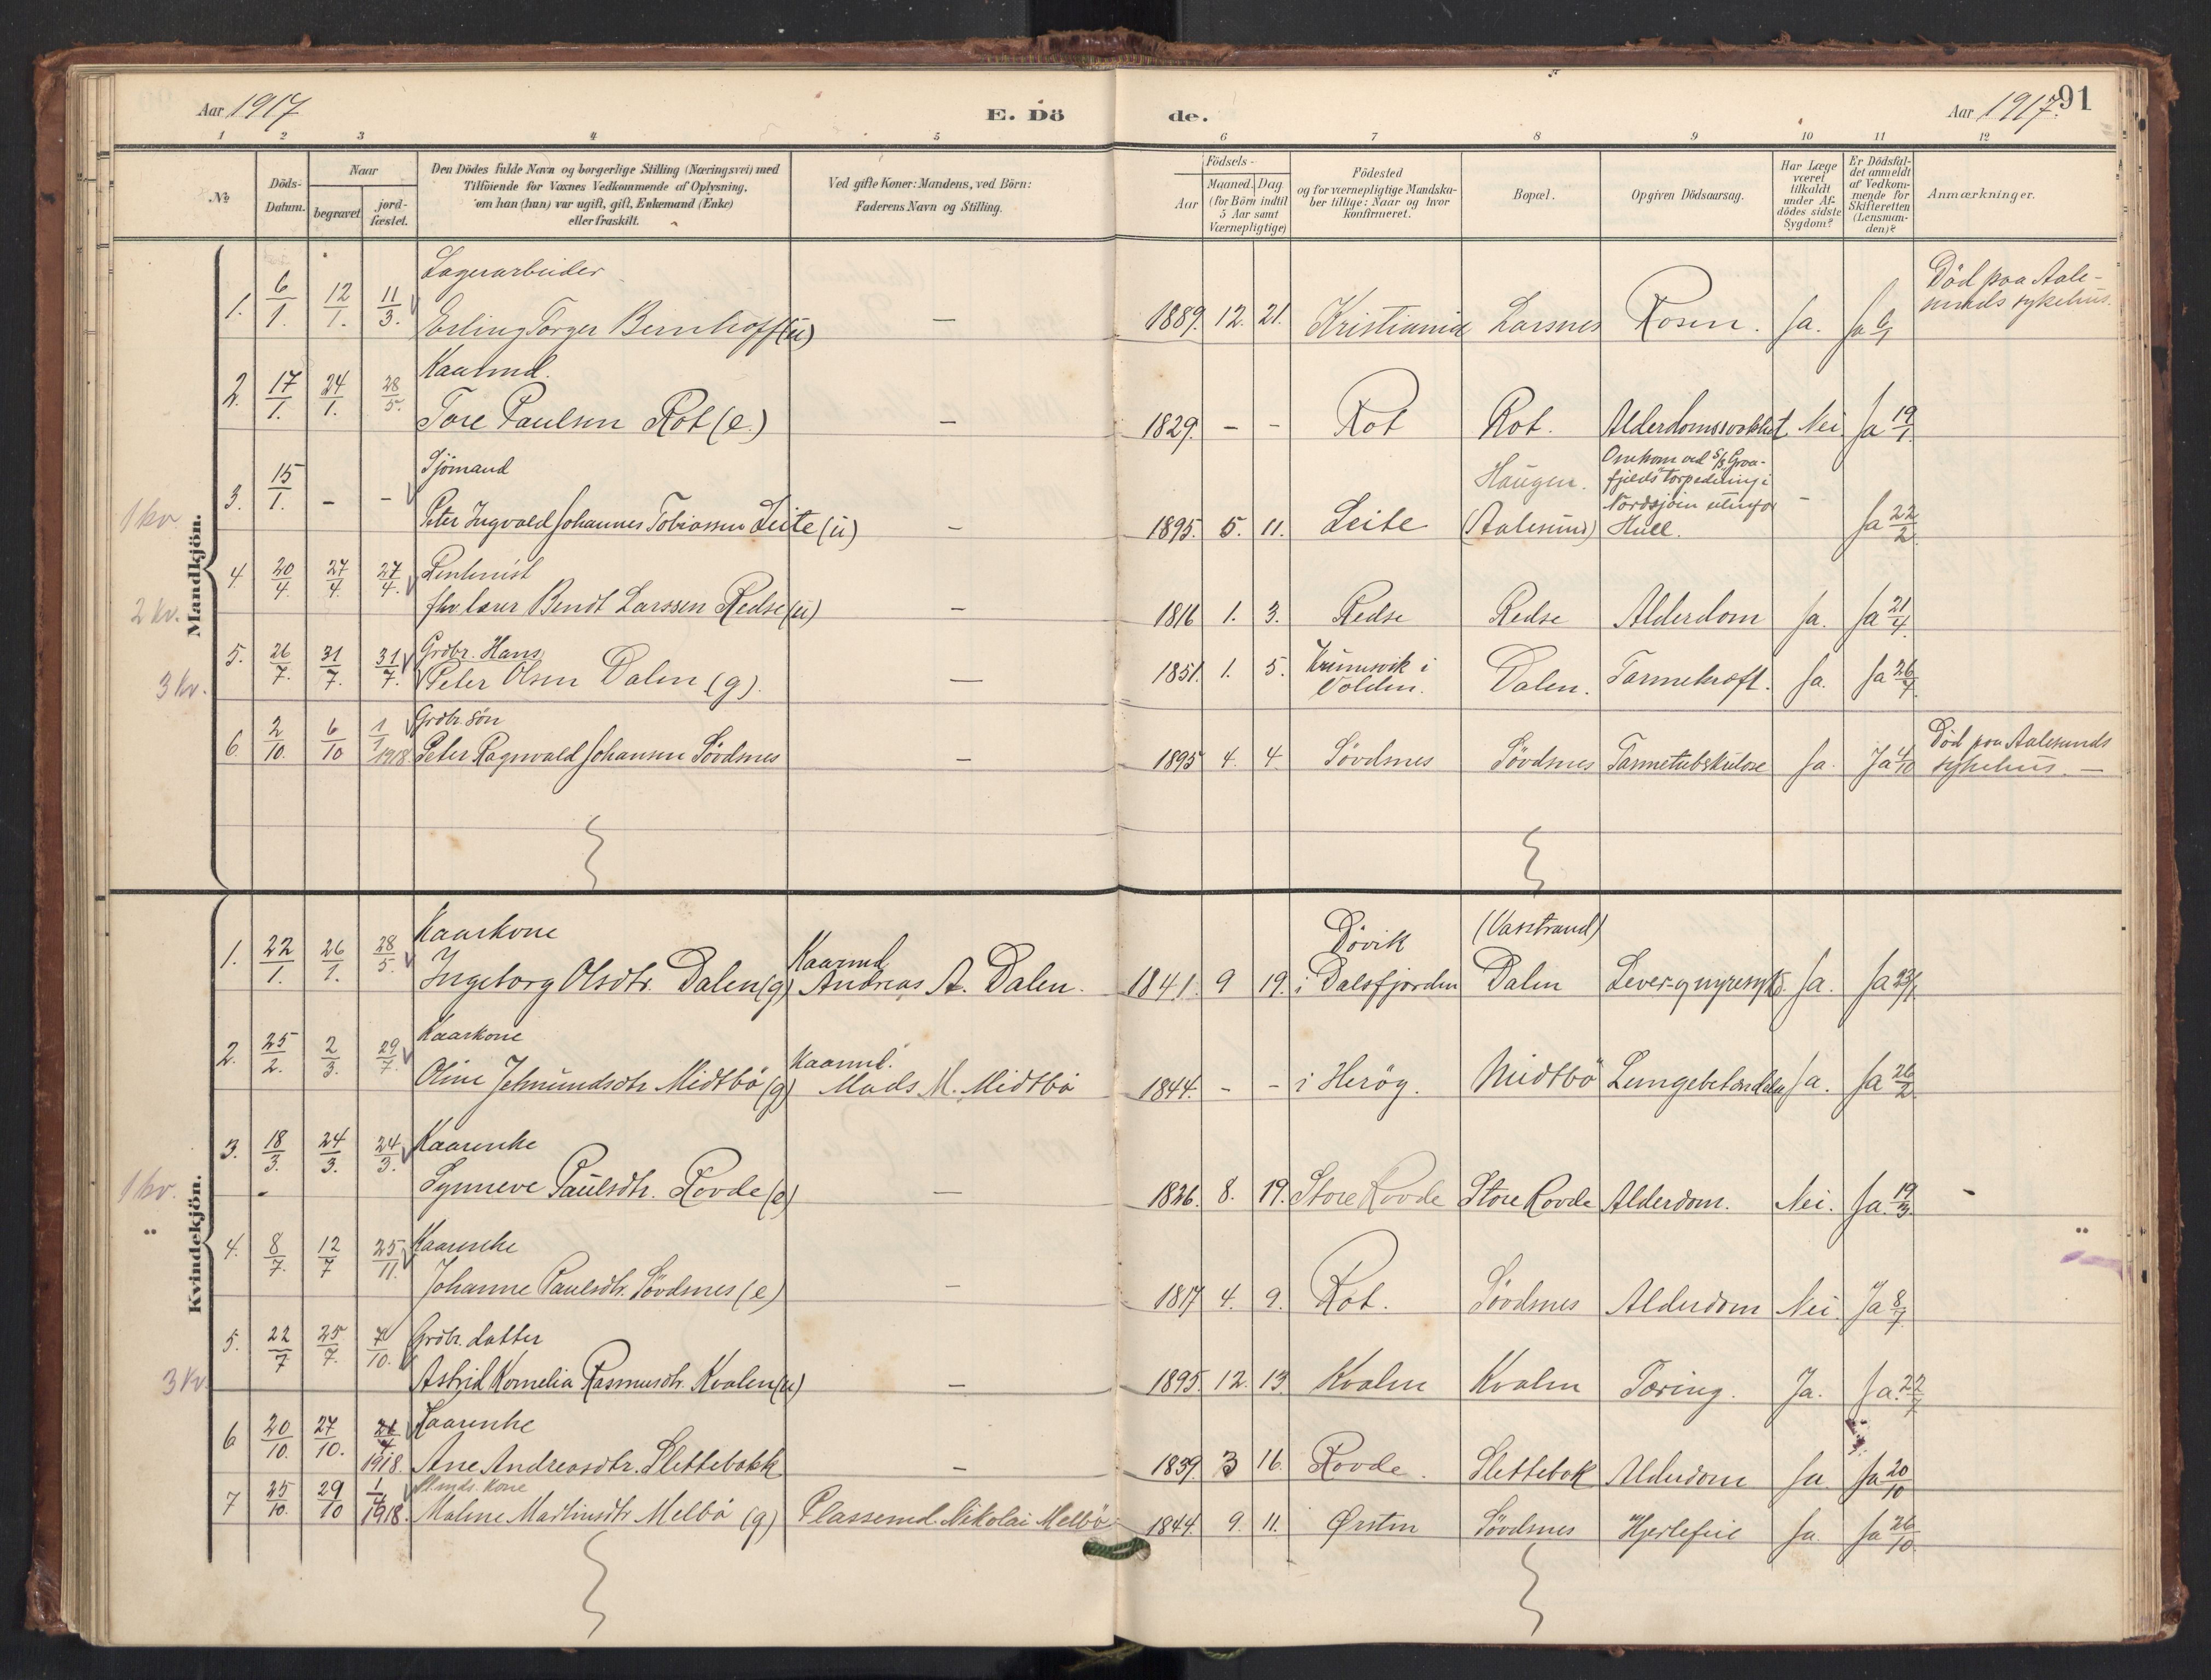 Aar 1917
E. Dö
de.
Aar 1917. 91
1 2 3 4 5 6 7 8 9 10 11 12
No
Döds-
Datum.
Naar
begravet
jord-
fæstet.
Den Dödes fulde Navn og borgerlige Stilling (Næringsvei) med
Tilföiende for Voxnes Vedkommende af Oplysning,
om han (hun) var ugift, gift, Enkemand (Enke)
eller fraskilt.
Ved gifte Koner: Mandens, ved Börn:
Faderens Navn og Stilling.
Födsels-
Aar
Maaned. Dag
(for Börn indtil
5 Aar samt
Værnepligtige)
Födested
og for værnepligtige Mandska-
ber tillige: Naar og hvor
konfirmeret.
Bopæl.
Opgiven Dödsaarsag.
Har Læge
været
tilkaldt
under Af-
dödes sidste
Sygdom?
Er Dödsfal-
det anmeldt
af Vedkom-
mende for
Skifteretten
(Lensman-
den)?
Anmærkninger.
Mandkjön.
Lagerarbeider
1. 6/1. 12/1. 11/3. Erling Torger Bernhoff (u) — 1889. 12. 21. Kristiania Larsnes Rosen. Ja. Ja 6/1
Död paa Aale-
sunds sykehus.
Kaarmd.
2. 17/1. 24/1. 28/5. Tore Paulsen Rot (e.) — 1829. - - Rot Rot. Alderdomssvakhet Nei Ja 19/1.
Sjömand
3. 15/1. - - Peter Ingvald Johannes Tobiassen Leite (u) — 1895. 5. 11. Leite
Haugen.
(Aalesund)
Omkom ved S/S "Groa-
fjelds" torpedering i
Nordsjöen utenfor
Hull.
- Ja 22/2.
1 kv.
4. 20/4. 27/4. 27/4.
fhv lærer Bendt Larssen Redse (u) — 1816 1. 3. Redse Redse Alderdom Ja. Ja 21/4.
2 kv.
Grdbr. Hans
5. 26/7. 31/7. 31/7. Peter Olsen Dalen (g). — 1851. 1. 5.
Krumsvik i
Volden.
Dalen. Tarmekræft. Ja. Ja 26/7.
3 kv.
Grdbr sön
6. 2/10. 6/10 1/1 1918. Peter Ragnvald Johansen Sövdsnes — 1895 4. 4. Sövdsnes Sövdsnes Tarmetuberkulose Ja. Ja 4/10
Död paa Aalesunds
sykehus. —
Kvindekjön.
Kaarkone
1. 22/1. 26/1. 28/5. Ingeborg Olsdtr. Dalen (g)
Kaarmd.
Andreas A. Dalen.
1841. 9 19.
Dövik
i Dalsfjorden
(Vasstrand)
Dalen
Lever- og nyresyke. Ja. Ja 23/1
Kaarkone
2. 25/2. 2/3. 29/7. Oline Jetmundsdtr Midtbö (g)
Kaarmd.
Mads M. Midtbö
1844. - - i Heröy. Midtbö Lungebetændelse Ja. Ja 26/2
Kaarenke
3. 18/3. 24/3. 24/3. Synneve Paulsdtr. Rovde (e) — 1826. 8. 19. Store Rovde Store Rovde Alderdom. Nei. Ja. 19/3.
1 kv.
"
Kaarenke
4. 8/7. 12/7 25/11. Johanne Paulsdtr. Sövdsnes (e) — 1817 4. 9. Rot. Sövdsnes Alderdom Nei. Ja 8/7.
Grdbr. datter
5. 22/7 25/7. 7/10. Astrid Kornelia Rasmusdtr. Kvalen (u) — 1895. 12. 13. Kvalen Kvalen Tæring. Ja. Ja. 22/7
3 kv.
Kaarenke
6 20/10. 27/10. 1918. Ane Andreasdtr. Slettebakk — 1839. 3 16. Rovde. Slettebak Alderdom Ja. Ja 20/10
Plmds. Kone
7 25/10. 29/10 1918. Malene Martinsdtr Melbö (g) Plassemd. Nikolai Melbö 1844. 9. 11. Ørsten Sövdsnes Hjertefeil Ja Ja 26/10